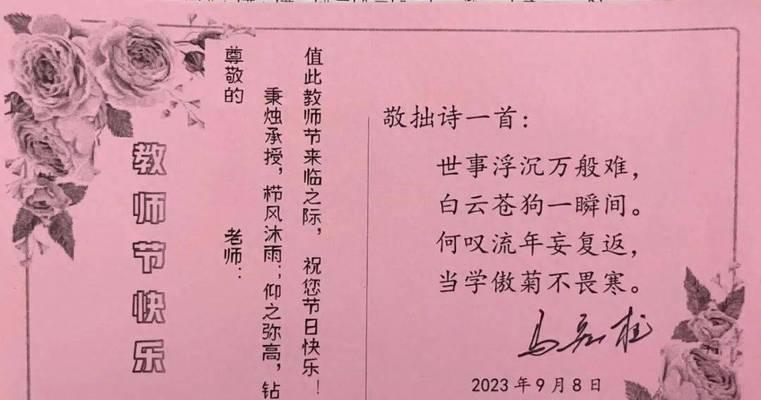 教师节快乐
尊敬的 老师：
秉烛承授，栉风沐雨；仰之弥高，钻
值此教师节来临之际，祝您节日快乐！
敬拙诗一首：
世事浮沉万般难，
白云苍狗一瞬间。
何叹流年妄复返，
当学傲菊不畏寒。
2023年9月8日